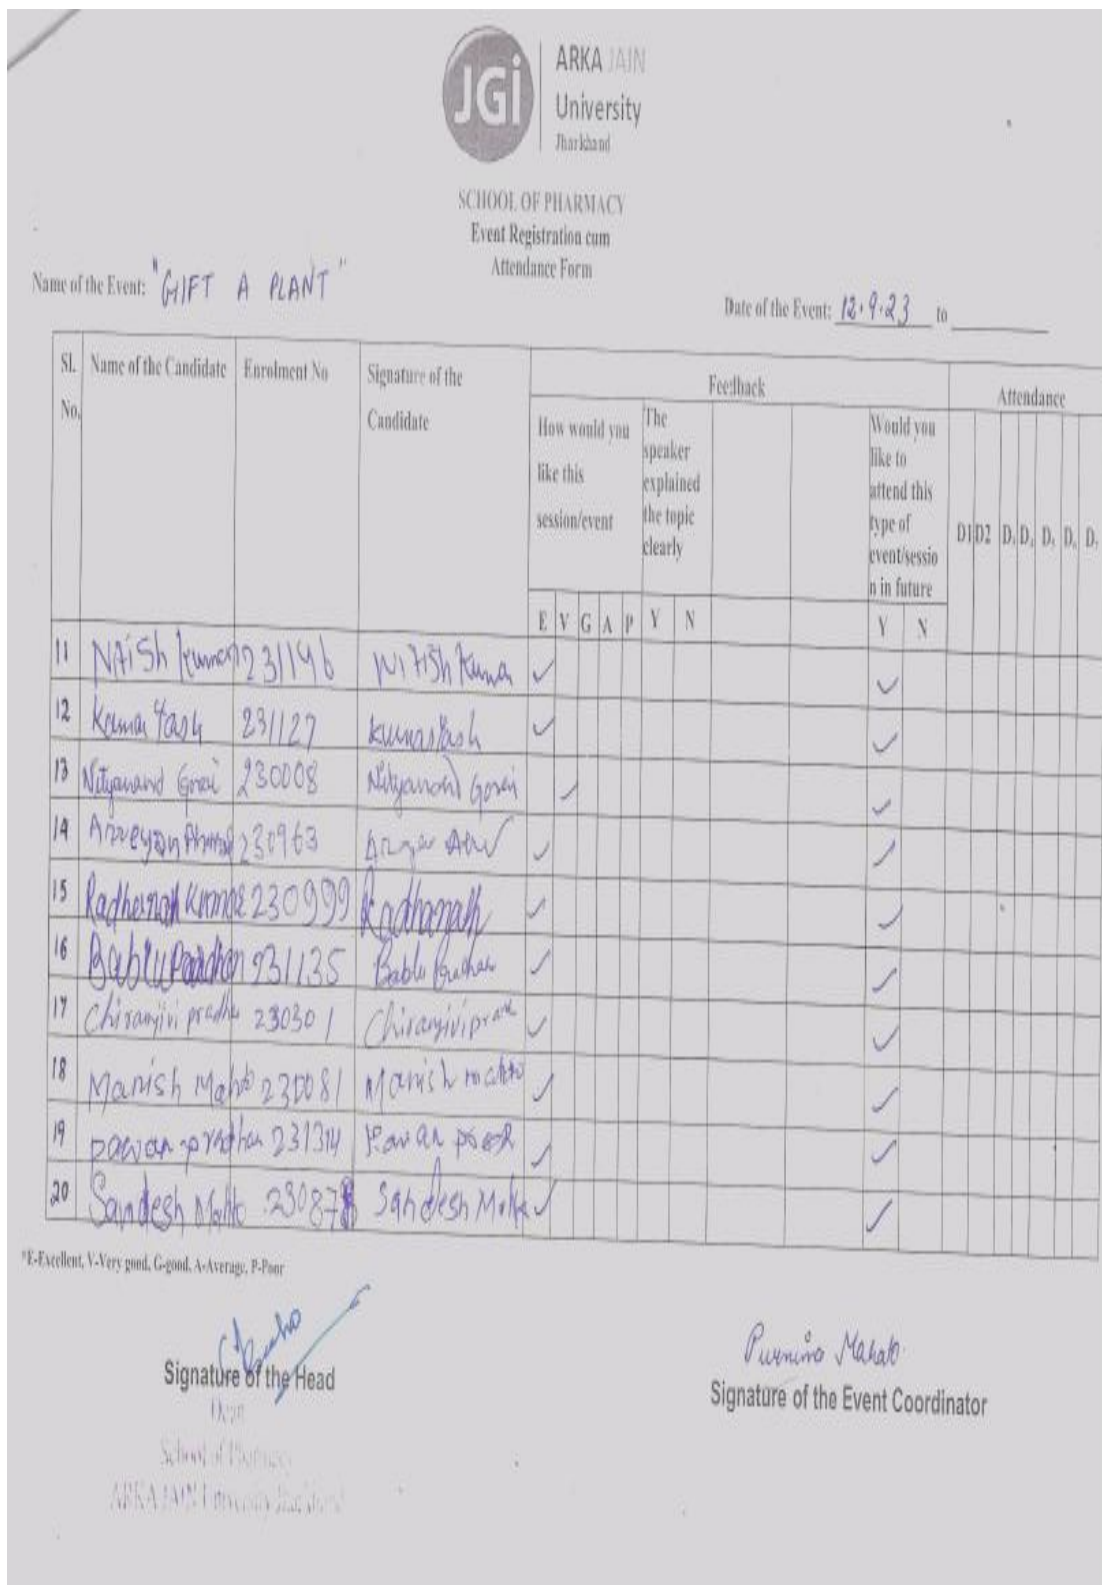 JGi
ARKA JAIN
University
Jharkhand
SCHOOL OF PHARMACY
Event Registration cum
Attendance Form
Name of the Event: "GIFT A PLANT"
Date of the Event: 12.9.23 to
Sl. No. Name of the Candidate Enrolment No Signature of the Candidate Feedback Attendance
How would you like this session/event
The speaker explained the topic clearly
Would you like to attend this type of event/session in future
D1 D2 D3 D4 D5 D6 D7
E V G A P Y N Y N
11 Nitish kumar 231146 Nitish Kuma
12 Kumar Yash 231127 kumar Yash
13 Nityanand Gorai 230008 Nityanand Gorai
14 230963
15 Radhanath 230999 Radhanath
16 Bablu Pradhan 231135 Bablu Pradhan
17 Chiranjivi pradha 230301 Chiranjivi
18 Manish Mahto 230081 Manish mahto
19 pawan pradhan 231314 Pawan
20 Sandesh Mahto 23087 Sandesh
*E-Excellent, V-Very good, G-good, A-Average, P-Poor
Signature of the Head
Dean
School of Pharmacy
ARKA JAIN University Jharkhand
Purnima Mahato
Signature of the Event Coordinator